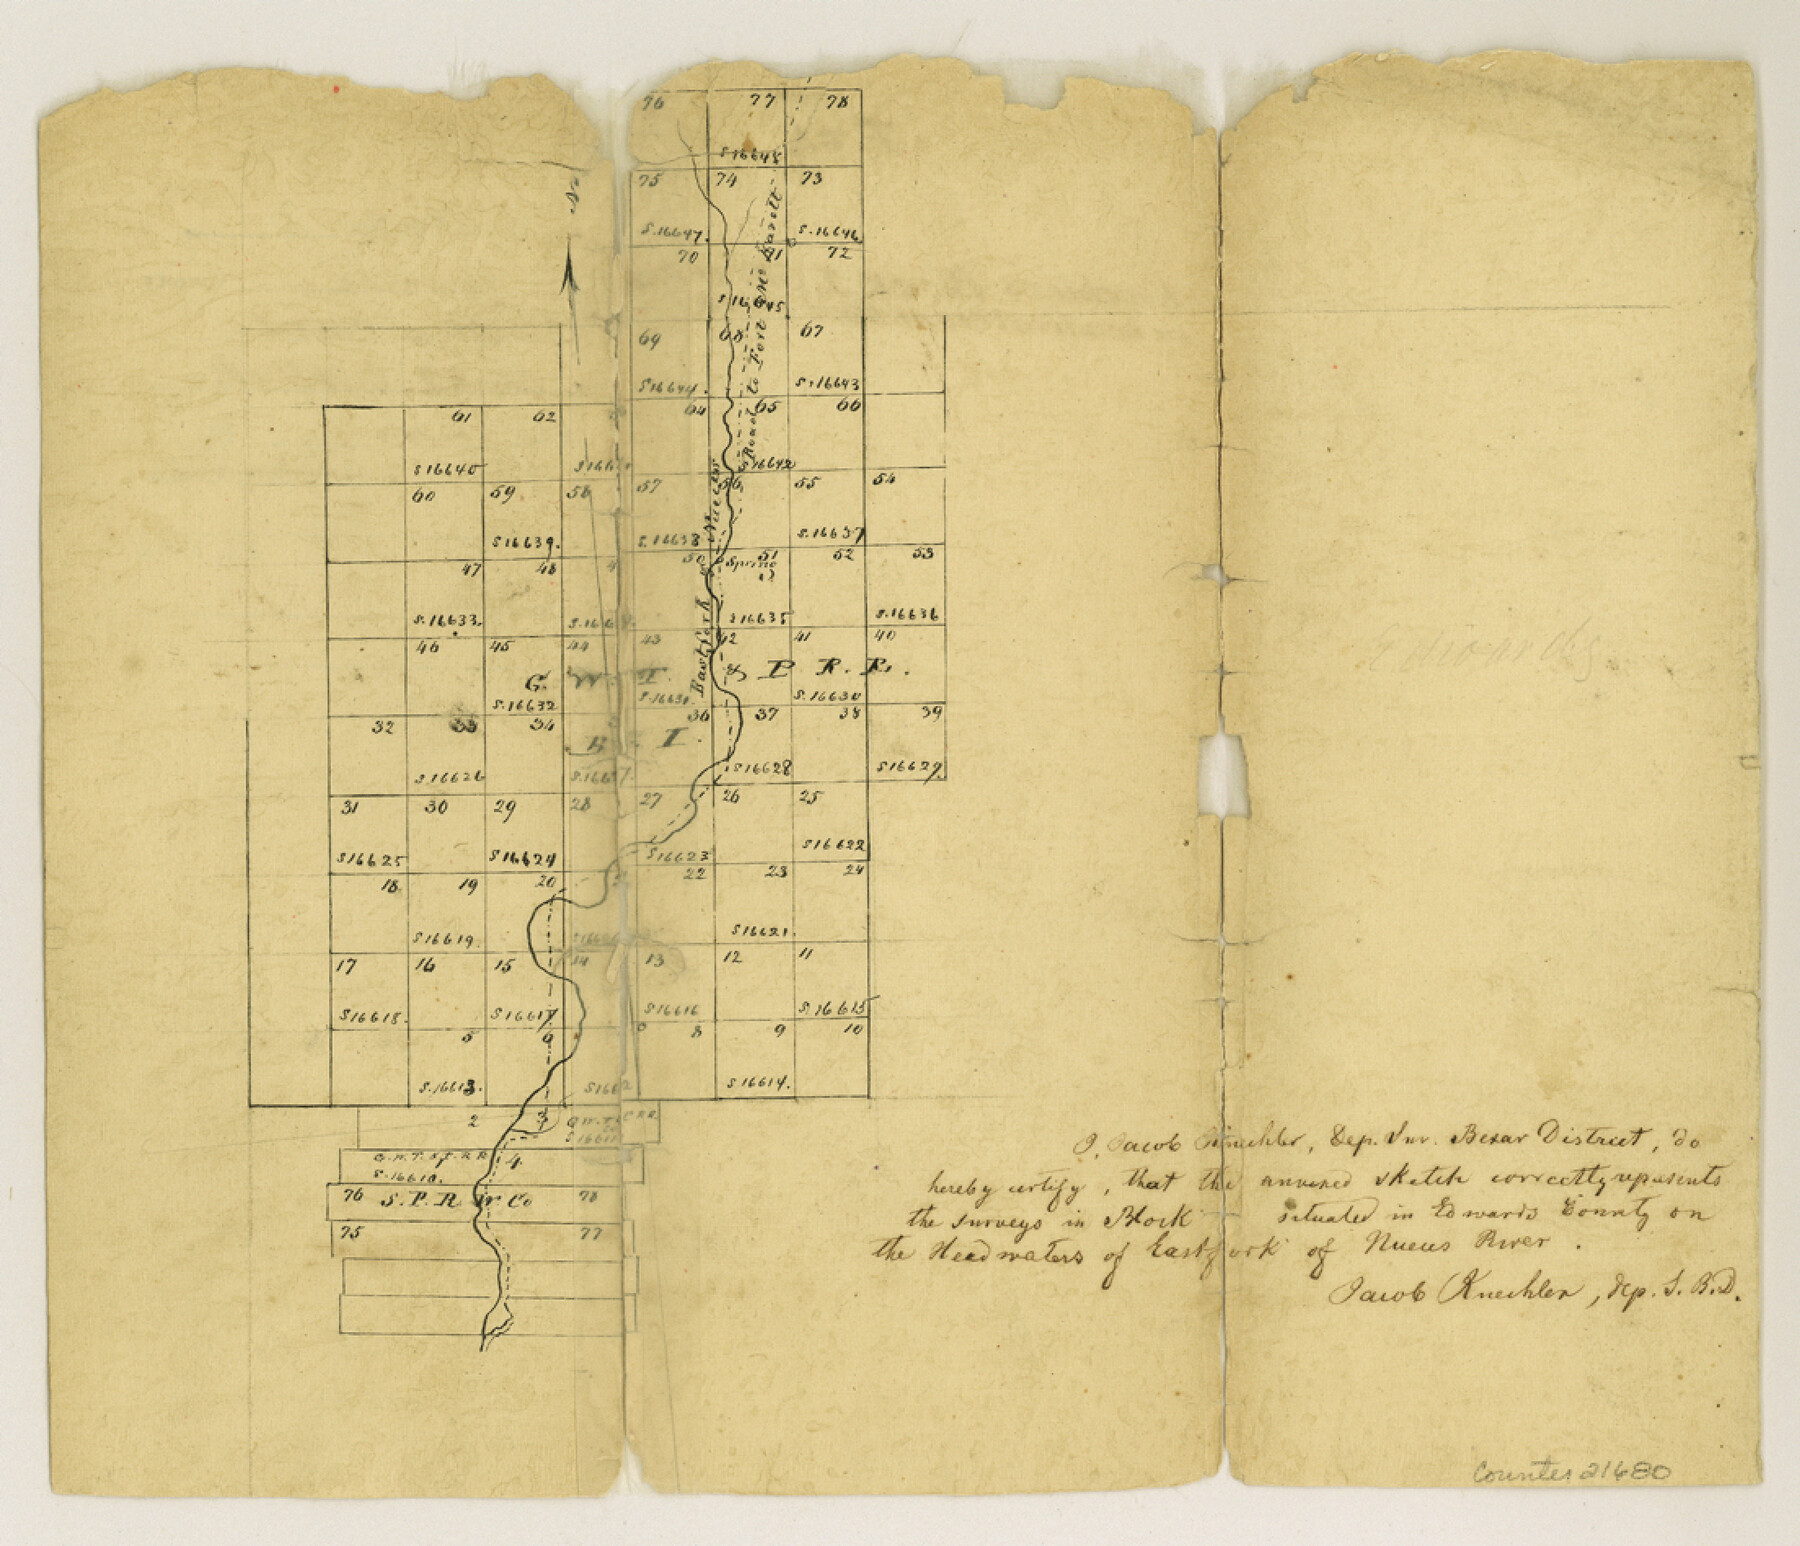 76 77 78
S16648
75 74 73
S.16647. S.16646
70 71 72
S16645
N
69 68 67
S16644. S.16643
61 62 64 65 66
S16640 S16642
60 59 58 57 56 55 54
S16639. S.16638 S.16637
47 48 50 51 52 53
Spring
S.16633. S16635 S.16636
46 45 44 43 42 41 40
G. W. T. & P. R. R.
S.16632 S.16631 S.16630
32 33 34 36 37 38 39
B I.
S.16626 S16628 S16629.
31 30 29 28 27 26 25
S16625 S16624 S16623 S16622
18 19 20 22 23 24
S16619 S16621.
17 16 15 14 13 12 11
S16618. S16617 S16616 S.16615
5 6 8 9 10
S.16613. S1661 S16614.
Road to Fort
East fork of Nueces
2 3 G.W.T. & P.R.R.
S16611
G.W.T. & P.R.R. 4
S.16610.
76 S.P.R.W Co 78
75 77
Edwards
I, Jacob Kuechler, Dep. Sur. Bexar District, do
hereby certify, that the annexed sketch correctly represents
the surveys in Block situated in Edwards County on
the Headwaters of Eastfork of Nueces River.
Jacob Kuechler, dep. S. B.D.
Counter 21680